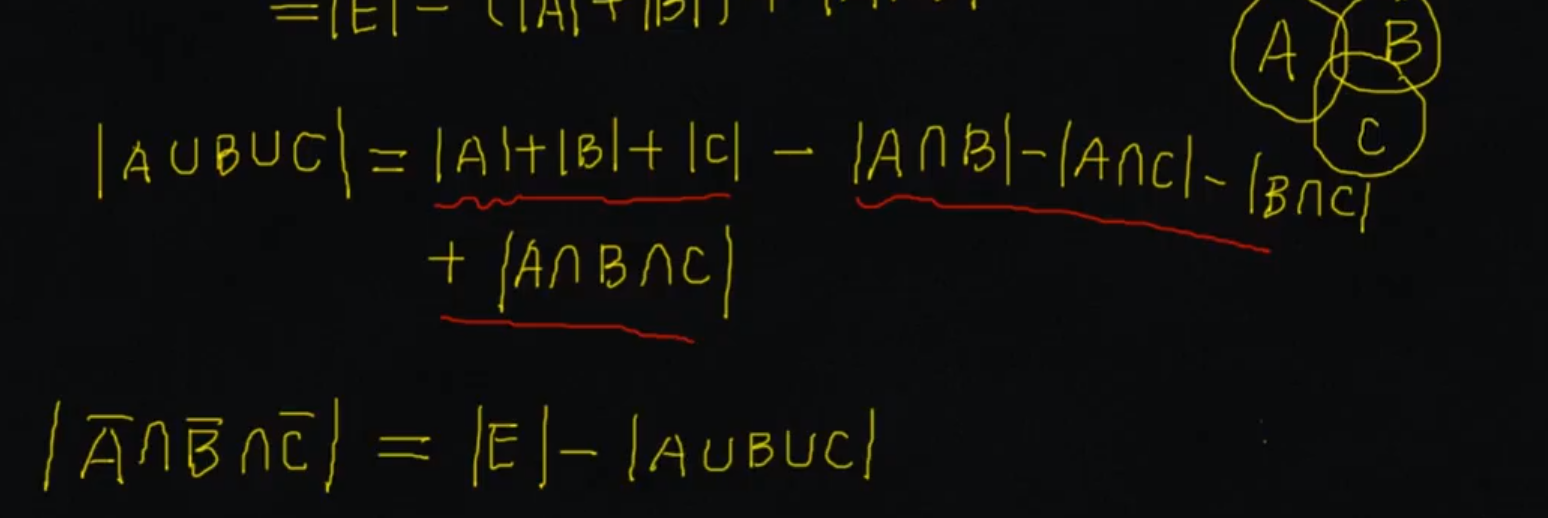 =|E| - (|A| + |B|) +
A B
C
|A∪B∪C| = |A|+|B|+|C| - |A∩B|-|A∩C|-|B∩C|
+ |A∩B∩C|
|A̅∩B̅∩C̅| = |E|-|A∪B∪C|